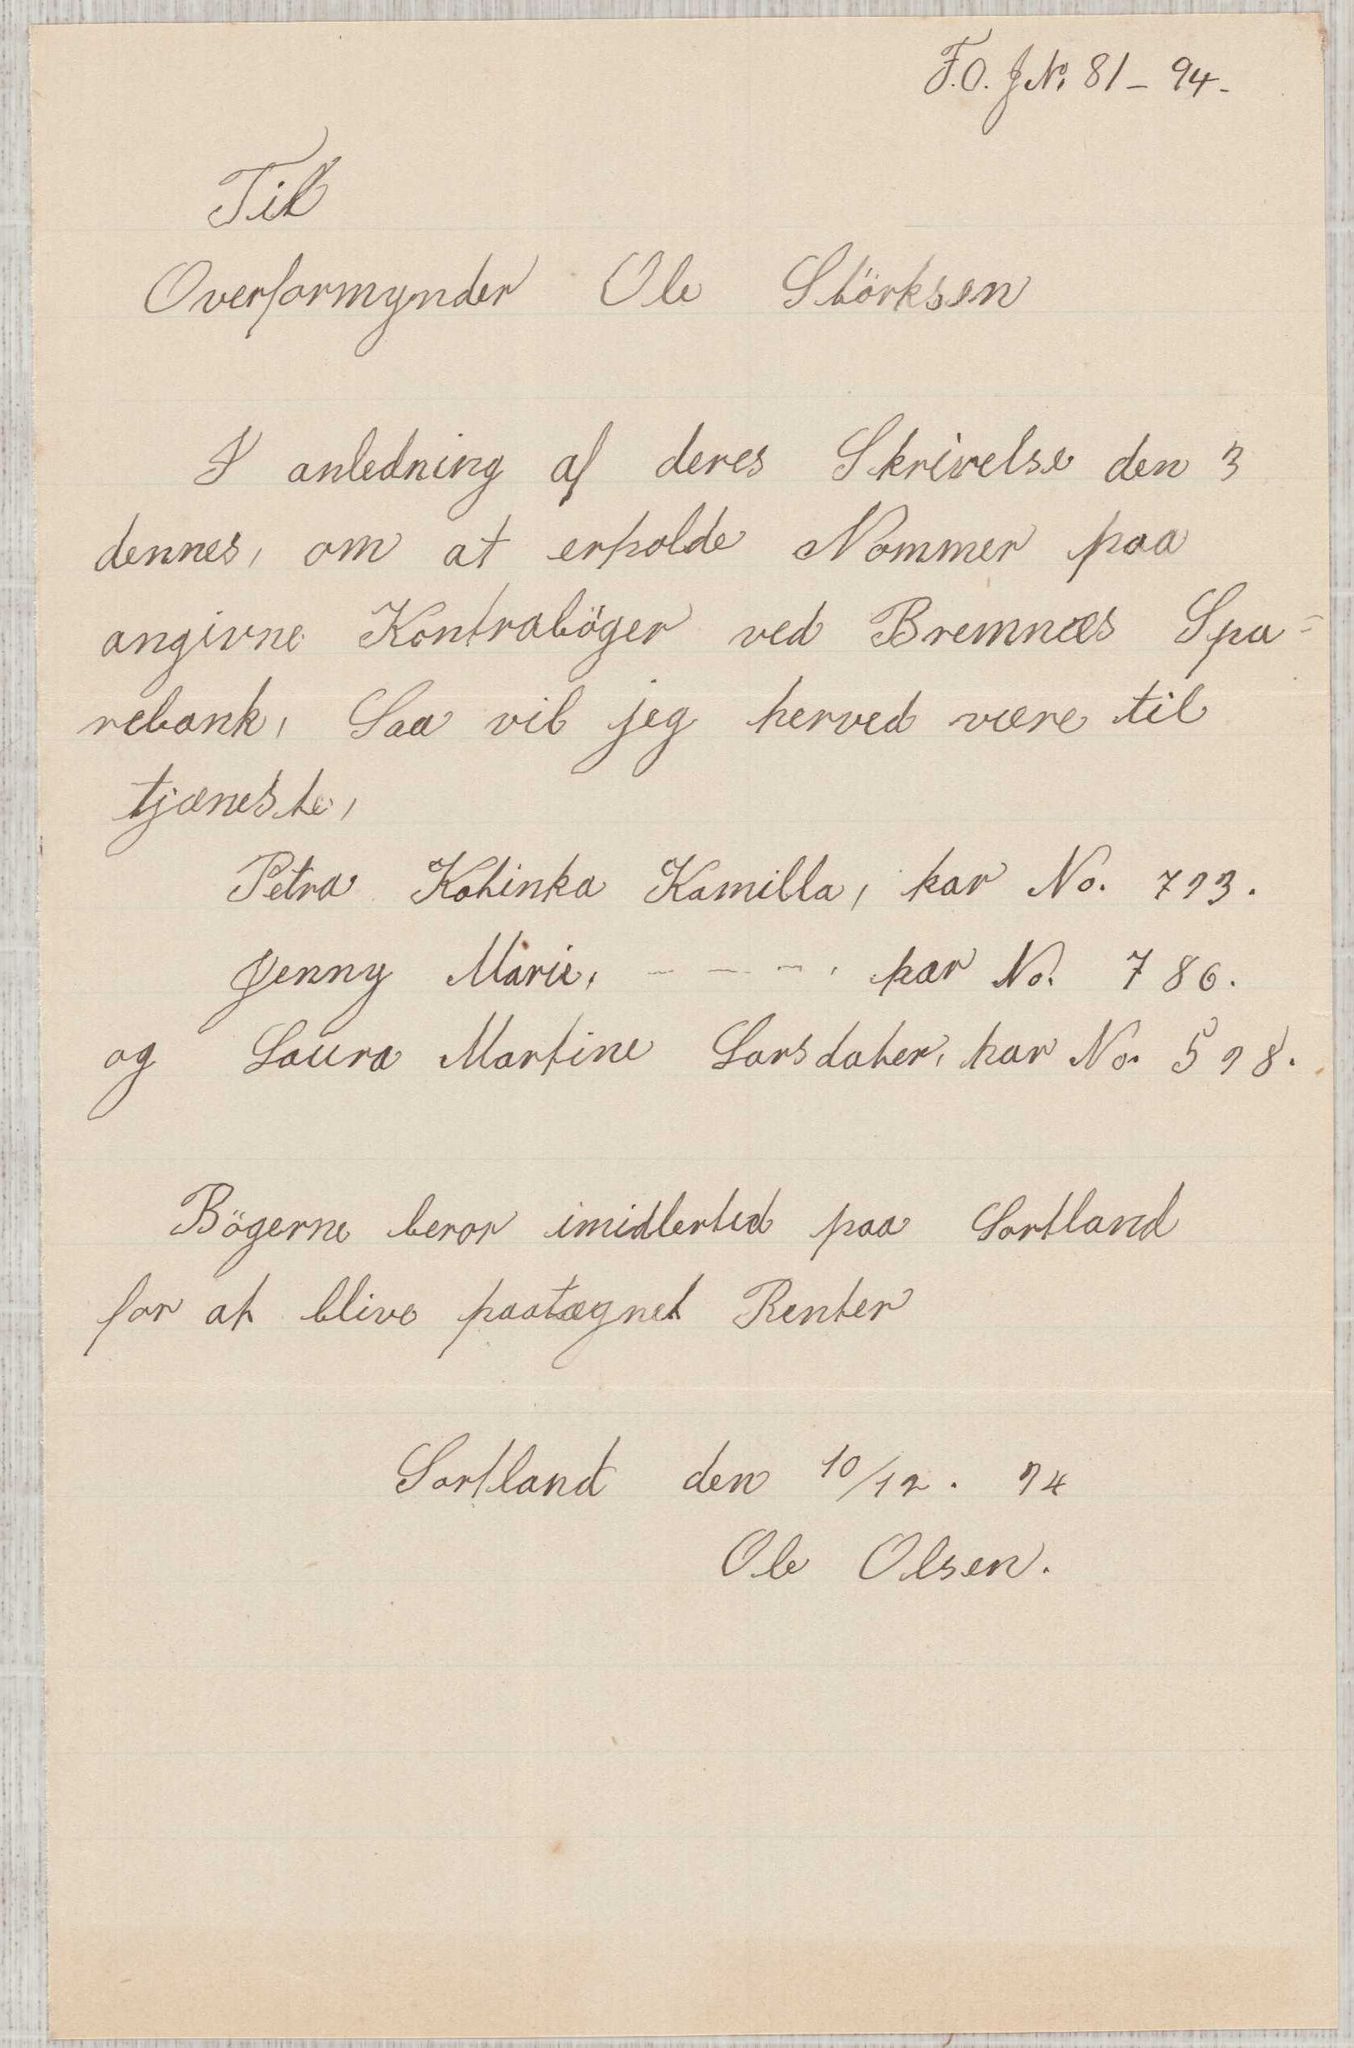 F.O. J No 81 - 94.
Til
Overformynder Ole Störksen
I anledning af deres Skrivelse den 3
dennes, om at erholde Nommer paa
angivne Kontraböger ved Bremnæs Spa=
rebank, Saa vil jeg herved være til
tjæneste,
Petra Katinka Kamilla, har No. 793.
Jenny Marie, - - - . har No. 786.
og Laura Martine Larsdater, har No. 598.
Bögerne beror imidlertid paa Sortland
for at blive paategnet Renter
Sortland den 10/12. 94
Ole Olsen.